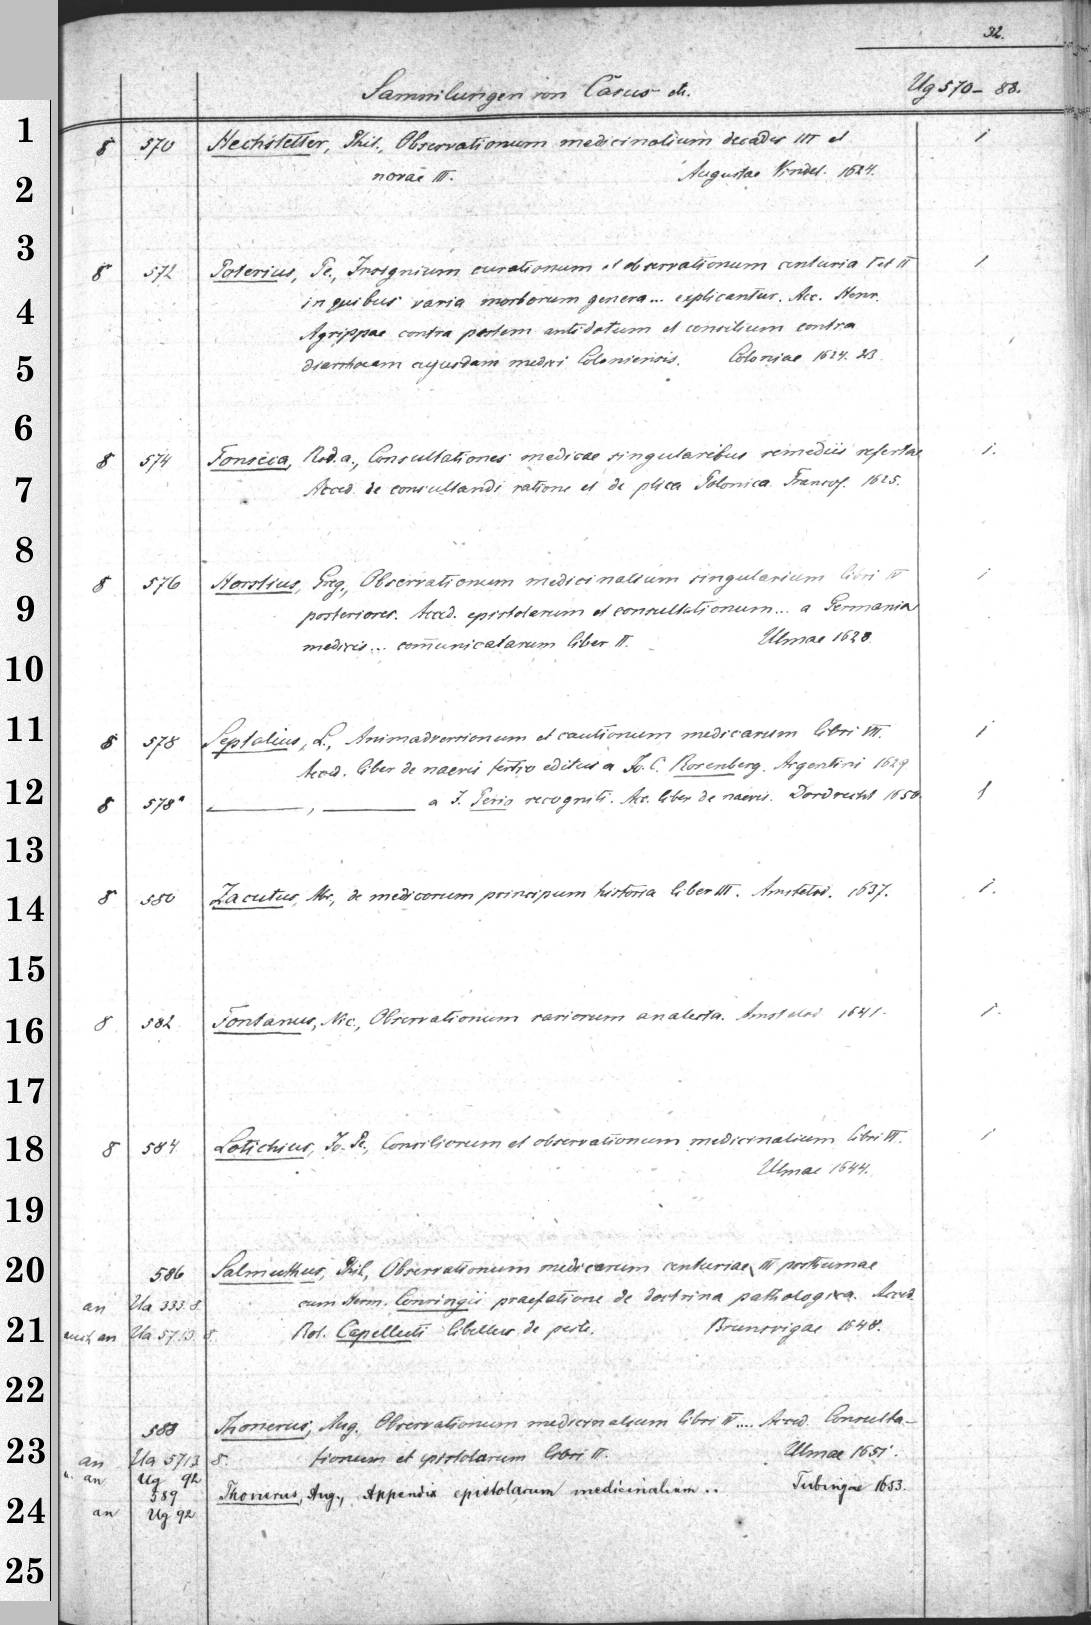 32.
Sammlungen von Casus etc. Ug 570-88.
1
8 570 Hechstetter, Phil., Observationum medicinalium decades III et 1
2
novae III. Augustae Vindel. 1624.
3
8 572 Poterius, Pe., Insignium curationum et observationum centuria I et II 1
4
in quibus varia morborum genera... explicantur. Acc. Henr.
Agrippae contra pestem antidotum et consilium contra
5
diarrhoeam cujusdam medici Coloniensis. Coloniae 1624. 23.
6
8 574 Fonseca, Rod. a., Consultationes medicae singularibus remediis refertae 1.
7
Acced. de consultandi ratione et de plica Polonica. Francof. 1625.
8
8 576 Horstius, Greg., Observationum medicinalium singularium libri IV 1
9
posteriores. Acced. epistolarum et consultationum... a Germaniae
10
medicis... com̄unicatarum liber II. Ulmae 1628.
11
8 578 Septalius, L., Animadversionum et cautionum medicarum libri VII. 1
Acced. liber de naevis tertio editus a Jo. C. Rosenberg. Argentini 1629
12
8 578a ———, ——— a J. Perio recogniti. Acc. liber de naevis. Dordrecht 1650. 1
13
14
8 580 Zacutus, Abr., de medicorum principum historia liber III. Amstelod. 1637. 1.
15
16
8 582 Fontanus, Nic., Observationum rariorum analecta. Amstelod 1641. 1.
17
18
8 584 Lotichius, Jo. Pe., Consiliorum et observationum medicinalium libri VI. 1
Ulmae 1644.
19
20
586 Salmuthus, Phil., Observationum medicarum centuriae III posthumae
an Ua 333. 8. cum Herm. Conringii praefatione de doctrina pathologica. Acced.
21
auch an Ua 5713 8. Rot. Capelluti libellus de peste. Brunsvigae 1648.
22
588 Thonerus, Aug. Observationum medicinalium libri IV.... Acced. Consulta-
23
an Ua 5713 8. tionum et epistolarum libri II. Ulmae 1651.
u. an Ug 92
589 Thonerus, Aug., Appendix epistolarum medicinalium .. Tubingae 1653.
24
an Ug 92
25